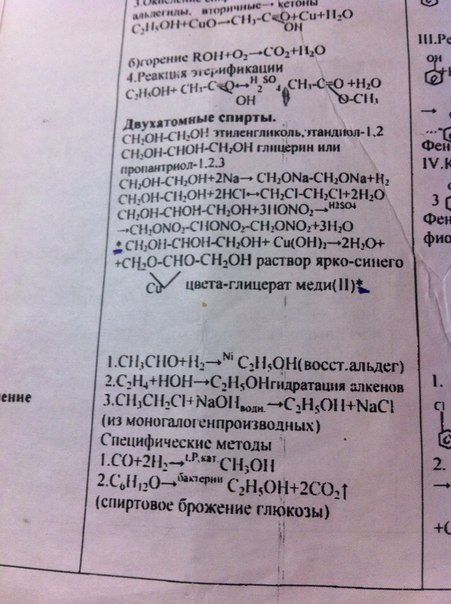 3.Окисление спирт
альдегиды, вторичные→ кетоны
C₂H₅OH+CuO→CH₃-C=O+Cu+H₂O
OH
б)горение ROH+O₂→CO₂+H₂O
4.Реакция этерификации
C₂H₅OH+ CH₃-C=O↔H₂SO₄ CH₃-C=O +H₂O
OH O-CH₃
Двухатомные спирты.
CH₂OH-CH₂OH этиленгликоль,этандиол-1,2
CH₂OH-CHOH-CH₂OH глицерин или
пропантриол-1,2,3
CH₂OH-CH₂OH+2Na→ CH₂ONa-CH₂ONa+H₂
CH₂OH-CH₂OH+2HCl↔CH₂Cl-CH₂Cl+2H₂O
CH₂OH-CHOH-CH₂OH+3HONO₂→H2SO4
→CH₂ONO₂-CHONO₂-CH₂ONO₂+3H₂O
*CH₂OH-CHOH-CH₂OH+ Cu(OH)₂→2H₂O+
+CH₂O-CHO-CH₂OH раствор ярко-синего
Cu цвета-глицерат меди(II)*
1.CH₃CHO+H₂→Ni C₂H₅OH(восст.альдег)
2.C₂H₄+HOH→C₂H₅OHгидратация алкенов
3.CH₃CH₂Cl+NaOHводн.→C₂H₅OH+NaCl
(из моногалогенпроизводных)
Специфические методы
1.CO+2H₂→t,P,кат.CH₃OH
2.C₆H₁₂O→бактерии C₂H₅OH+2CO₂↑
(спиртовое брожение глюкозы)
ение
III.Ре
OH
→
Фен
IV.К
3
Фен
фио
1.
Cl
2.
→
+C